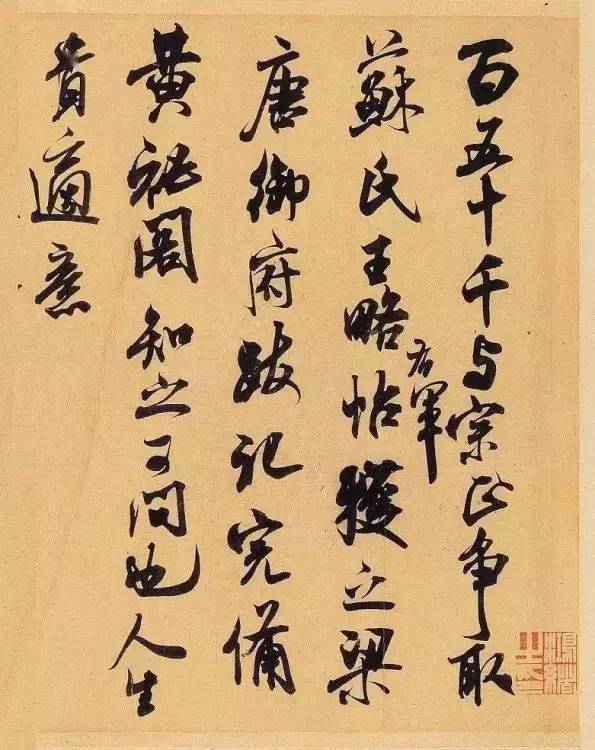 百五十千与宗正争取
蘇氏王略帖右軍獲之梁
唐御府跋記完備
黄秘阁知之可问也人生
貴適意